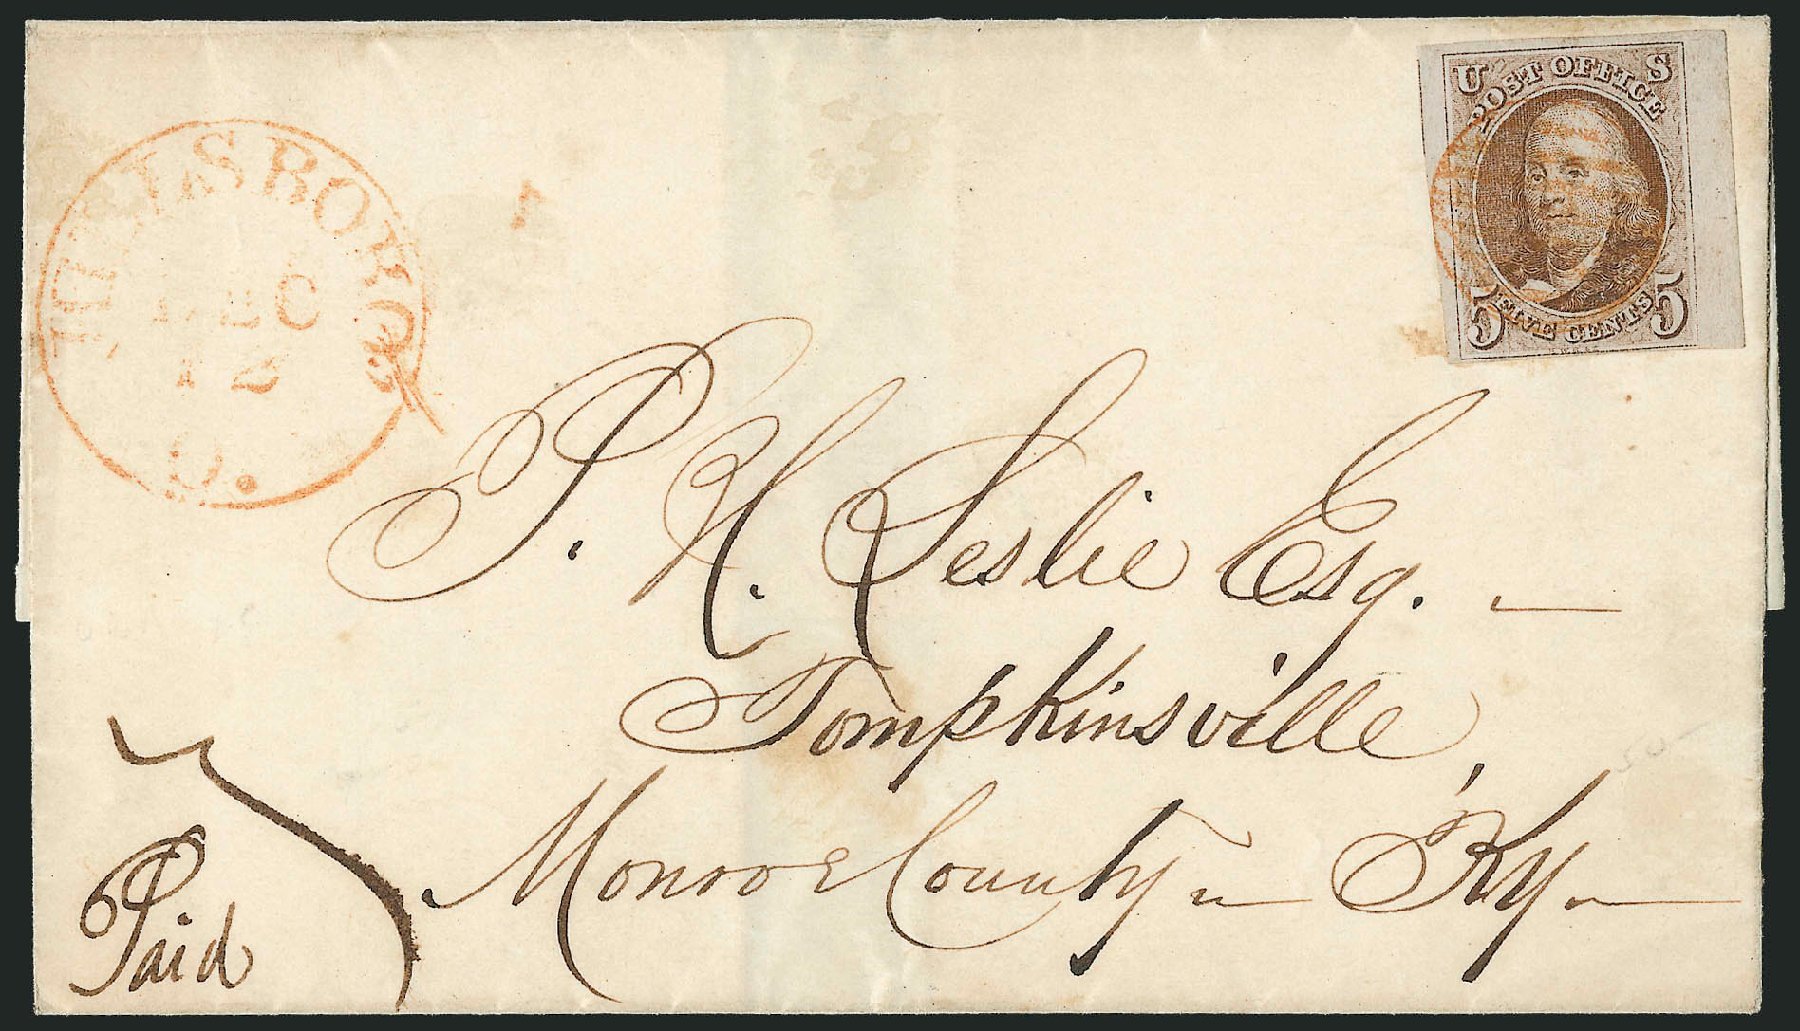 HILLSBORO
DEC
12
O.
U S
POST OFFICE
5 FIVE CENTS 5
P. H. Leslie Esq.
Tompkinsville,
Monroe County Ky
Paid